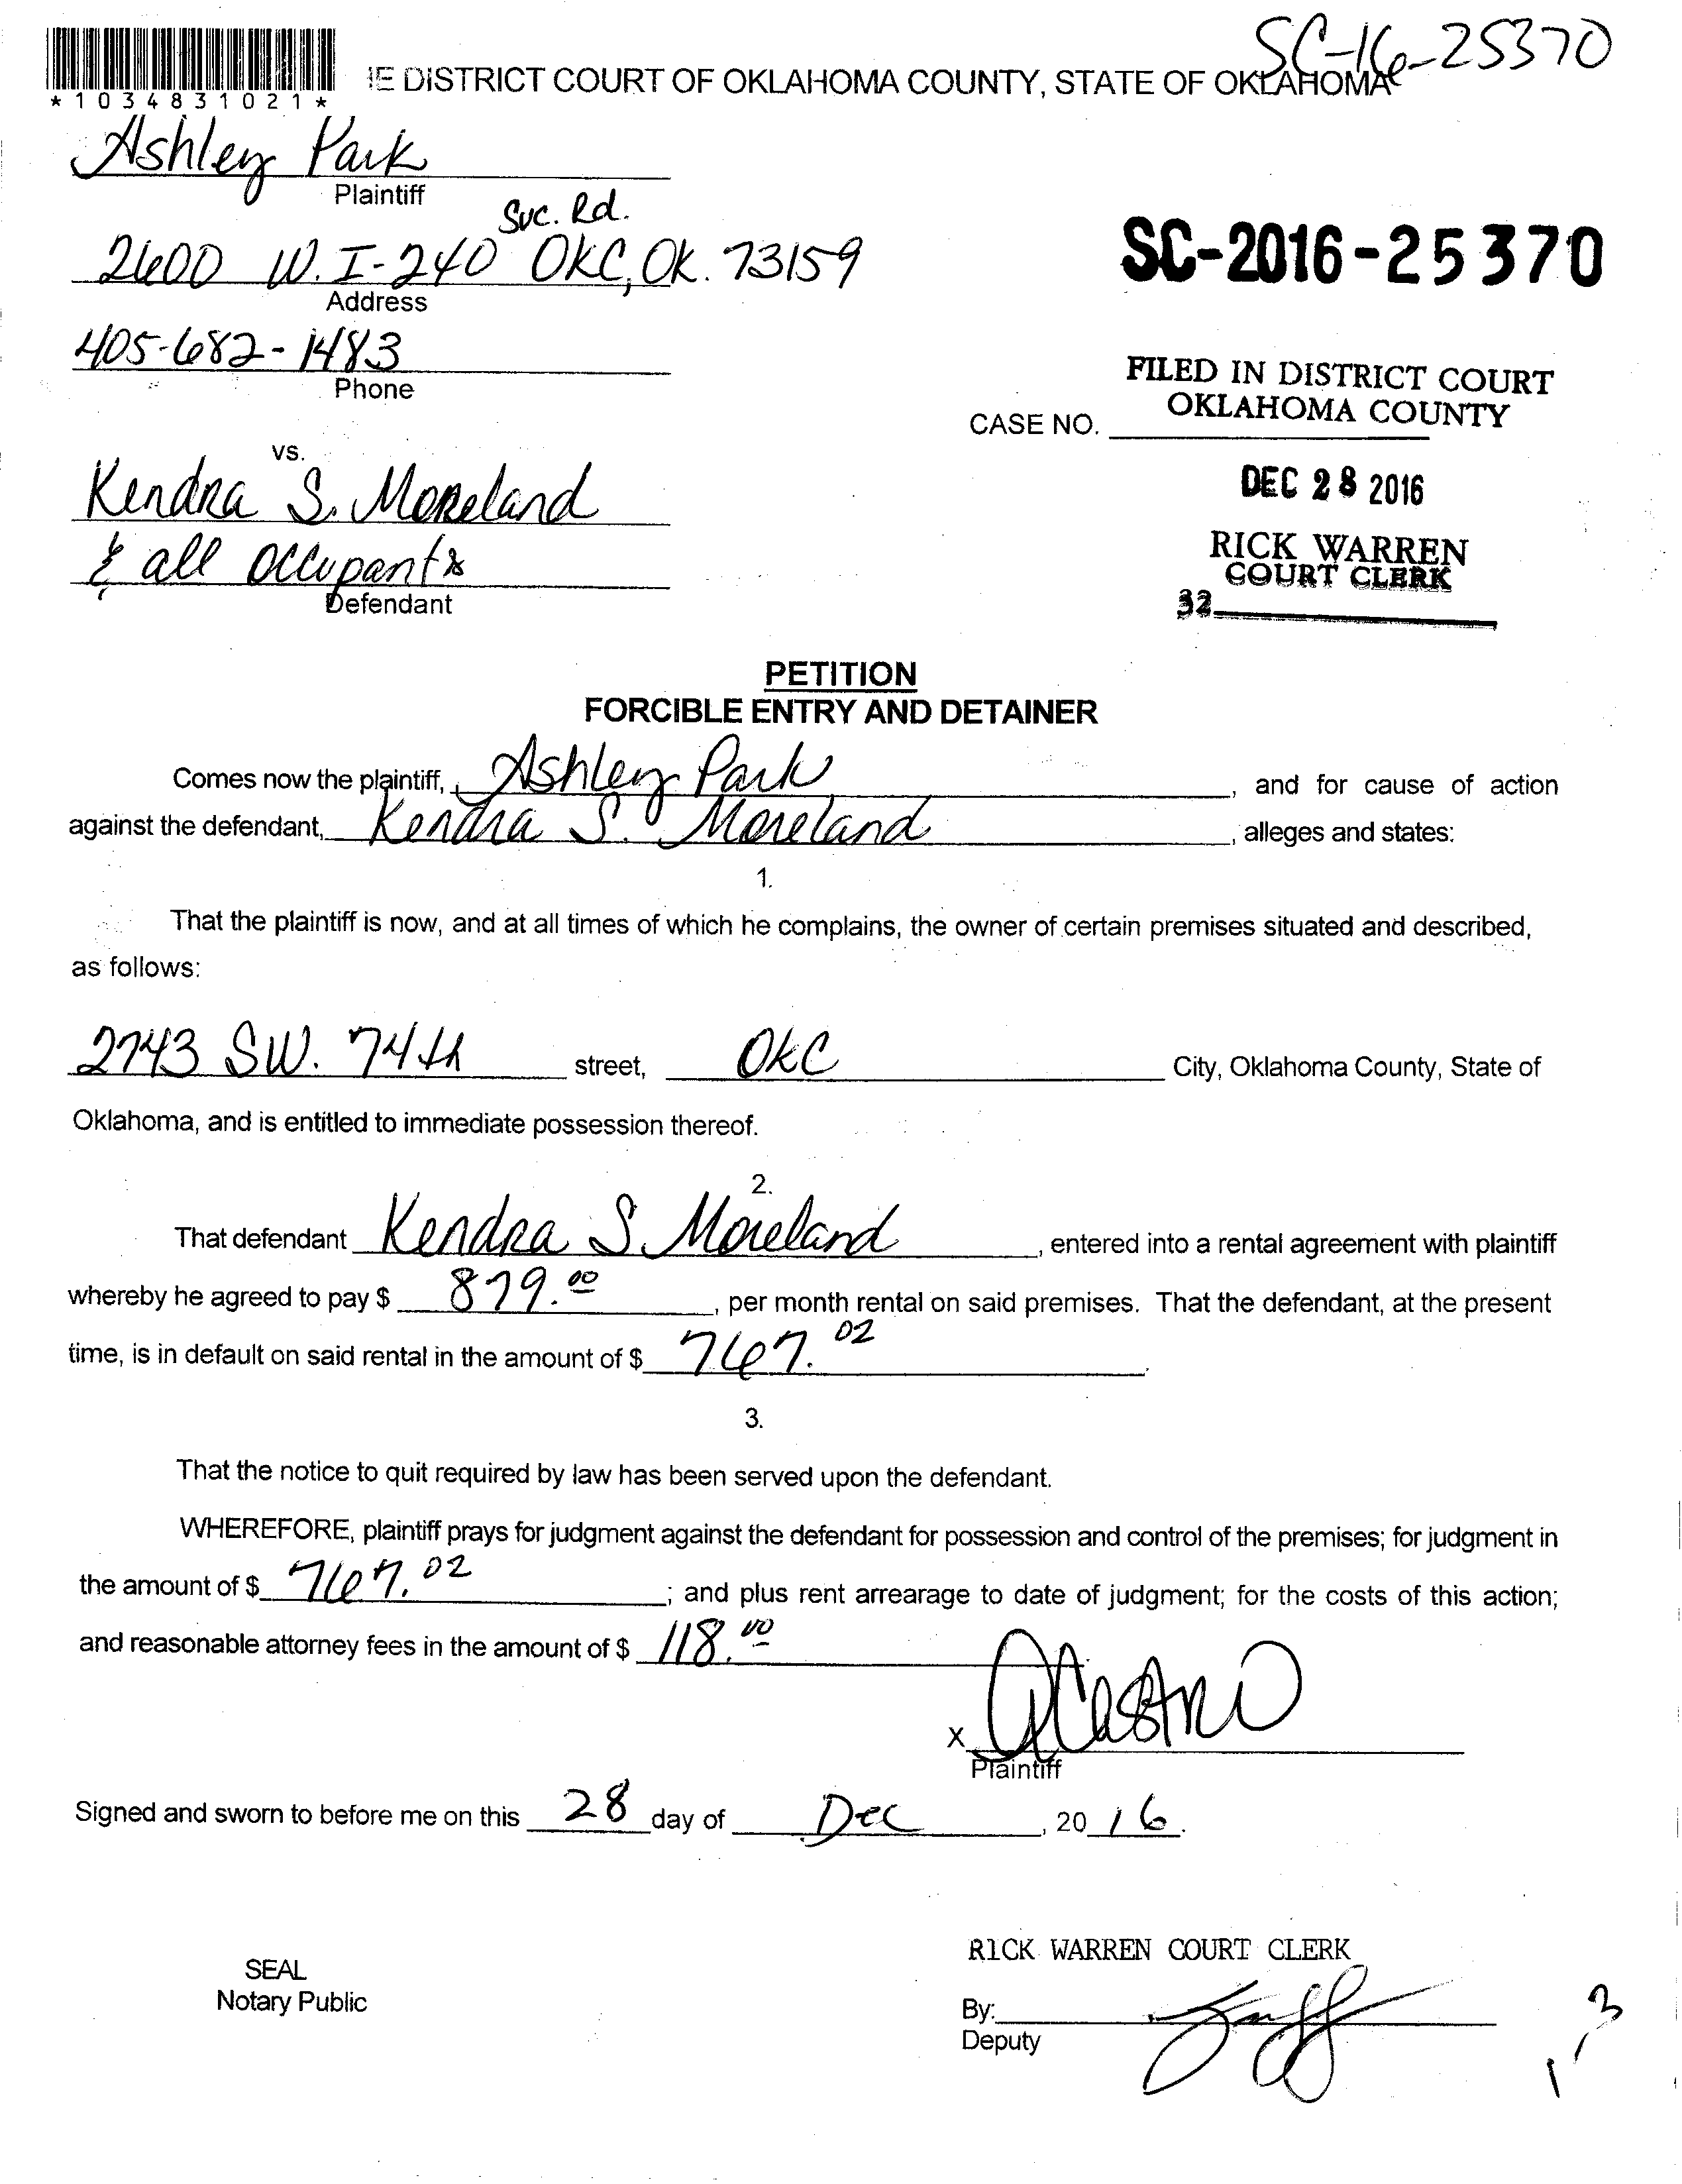 SC-16-25370
*1034831021*
IE DISTRICT COURT OF OKLAHOMA COUNTY, STATE OF OKLAHOMA
Ashley Park
Plaintiff
Svc. Rd.
2600 W. I-240 OKC, OK. 73159
Address
SC-2016-25370
405-682-1483
Phone
FILED IN DISTRICT COURT
OKLAHOMA COUNTY
CASE NO.
vs.
Kendra S. Moreland
& all occupants
Defendant
DEC 28 2016
RICK WARREN
COURT CLERK
32
PETITION
FORCIBLE ENTRY AND DETAINER
Comes now the plaintiff, Ashley Park, and for cause of action
against the defendant, Kendra S. Moreland, alleges and states:
1.
That the plaintiff is now, and at all times of which he complains, the owner of certain premises situated and described,
as follows:
2743 SW. 74th street, OKC City, Oklahoma County, State of
Oklahoma, and is entitled to immediate possession thereof.
2.
That defendant Kendra S. Moreland, entered into a rental agreement with plaintiff
whereby he agreed to pay $ 879.00, per month rental on said premises. That the defendant, at the present
time, is in default on said rental in the amount of $ 767.02.
3.
That the notice to quit required by law has been served upon the defendant.
WHEREFORE, plaintiff prays for judgment against the defendant for possession and control of the premises; for judgment in
the amount of $ 767.02; and plus rent arrearage to date of judgment; for the costs of this action;
and reasonable attorney fees in the amount of $ 118.00
X ACastro
Plaintiff
Signed and sworn to before me on this 28 day of Dec, 2016.
RICK WARREN COURT CLERK
SEAL
Notary Public
By:
Deputy